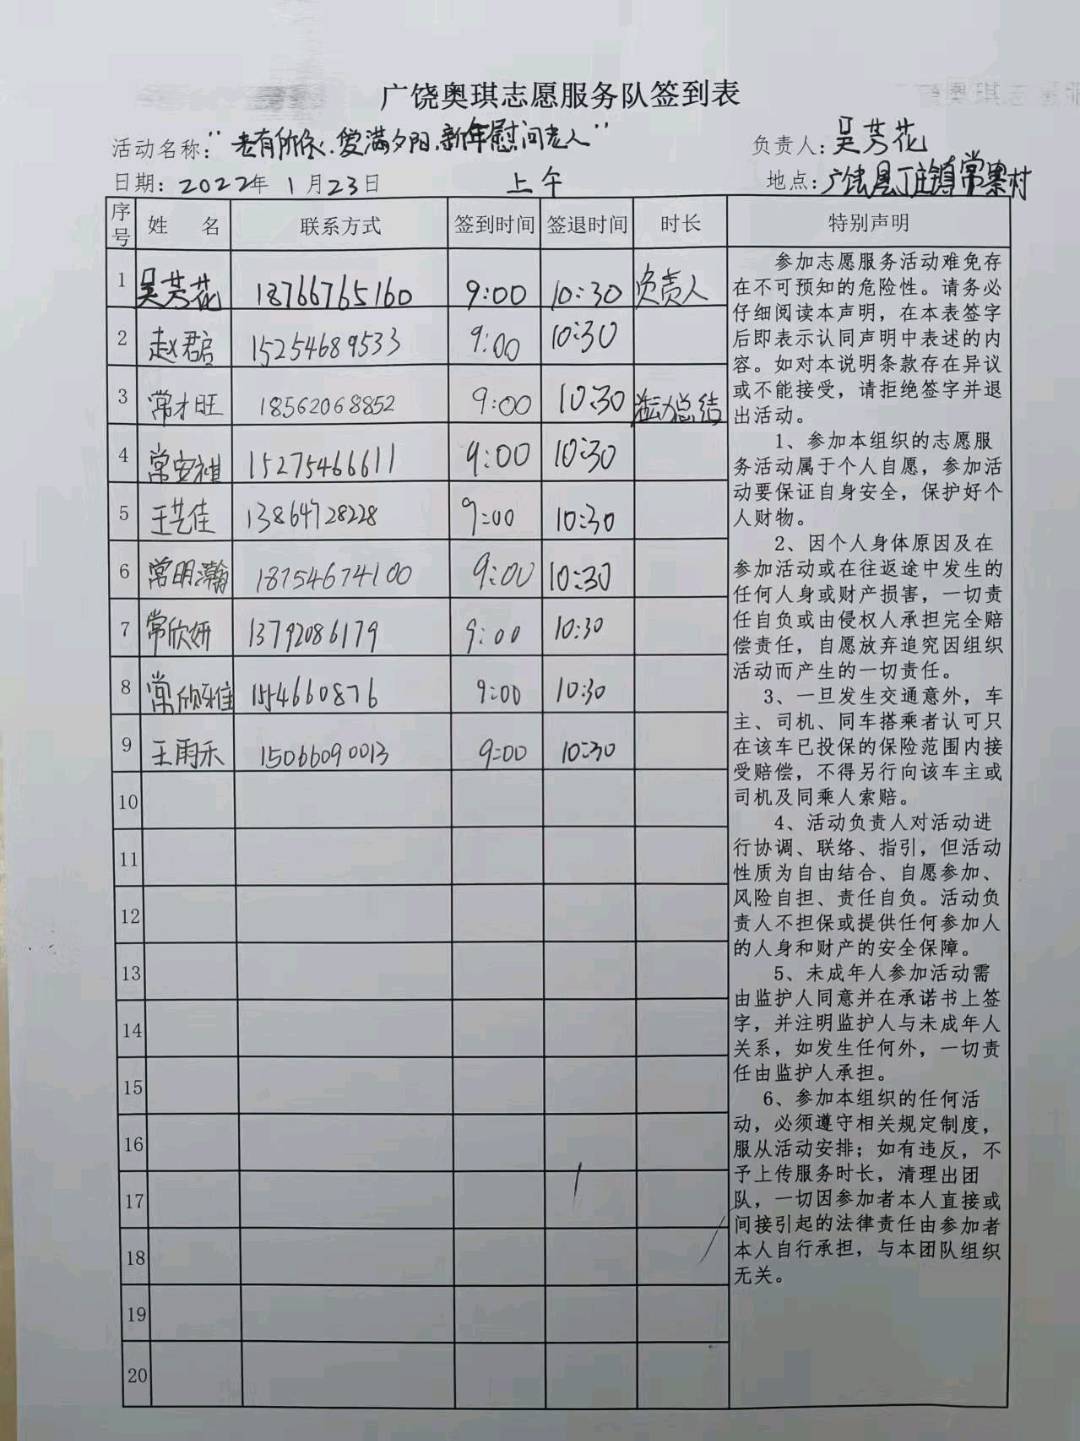 广饶奥琪志愿服务队签到表
活动名称："老有所依.爱满夕阳.新年慰问老人"
负责人:吴芳花
日期: 2022年 1月23日 上午
地点:广饶县丁庄镇常寨村
序号 姓 名 联系方式 签到时间 签退时间 时长 特别声明
1 吴芳花 18766765160 9:00 10:30 负责人
2 赵君 15254689533 9:00 10:30
3 常才旺 18562068852 9:00 10:30 活动总结
4 常安祺 15275466611 9:00 10:30
5 王艺佳 13864728228 9:00 10:30
6 常明瀚 18754674100 9:00 10:30
7 常欣妍 13792086179 9:00 10:30
8 常欣雅 1554660876 9:00 10:30
9 王雨禾 15066090013 9:00 10:30
10
11
12
13
14
15
16
17
18
19
20
参加志愿服务活动难免存
在不可预知的危险性。请务必
仔细阅读本声明，在本表签字
后即表示认同声明中表述的内
容。如对本说明条款存在异议
或不能接受，请拒绝签字并退
出活动。
1、参加本组织的志愿服
务活动属于个人自愿，参加活
动要保证自身安全，保护好个
人财物。
2、因个人身体原因及在
参加活动或在往返途中发生的
任何人身或财产损害，一切责
任自负或由侵权人承担完全赔
偿责任，自愿放弃追究因组织
活动而产生的一切责任。
3、一旦发生交通意外，车
主、司机、同车搭乘者认可只
在该车已投保的保险范围内接
受赔偿，不得另行向该车主或
司机及同乘人索赔。
4、活动负责人对活动进
行协调、联络、指引，但活动
性质为自由结合、自愿参加、
风险自担、责任自负。活动负
责人不担保或提供任何参加人
的人身和财产的安全保障。
5、未成年人参加活动需
由监护人同意并在承诺书上签
字，并注明监护人与未成年人
关系，如发生任何外，一切责
任由监护人承担。
6、参加本组织的任何活
动，必须遵守相关规定制度，
服从活动安排；如有违反，不
予上传服务时长，清理出团
队，一切因参加者本人直接或
间接引起的法律责任由参加者
本人自行承担，与本团队组织
无关。